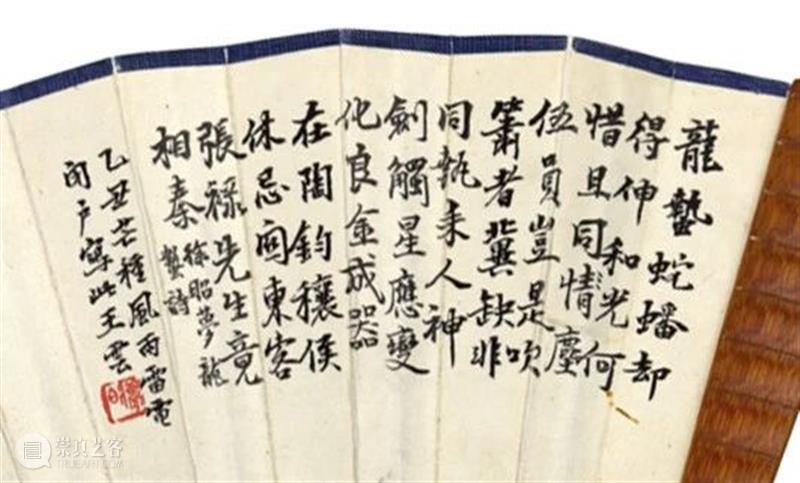 龍蟄蛇蟠却
得伸和光何
惜且同情塵
伍員豈是吹
簫者冀缺非
同執耒人神
劍觸星應變
化良金成器
在陶鈞穰侯
休忌関東客
張祿先生竟
相秦 徐昭夢龍
蟄詩
乙丑芒種風雨雷電
閉戶寫此王雲
崇真艺客
TRUEART.COM